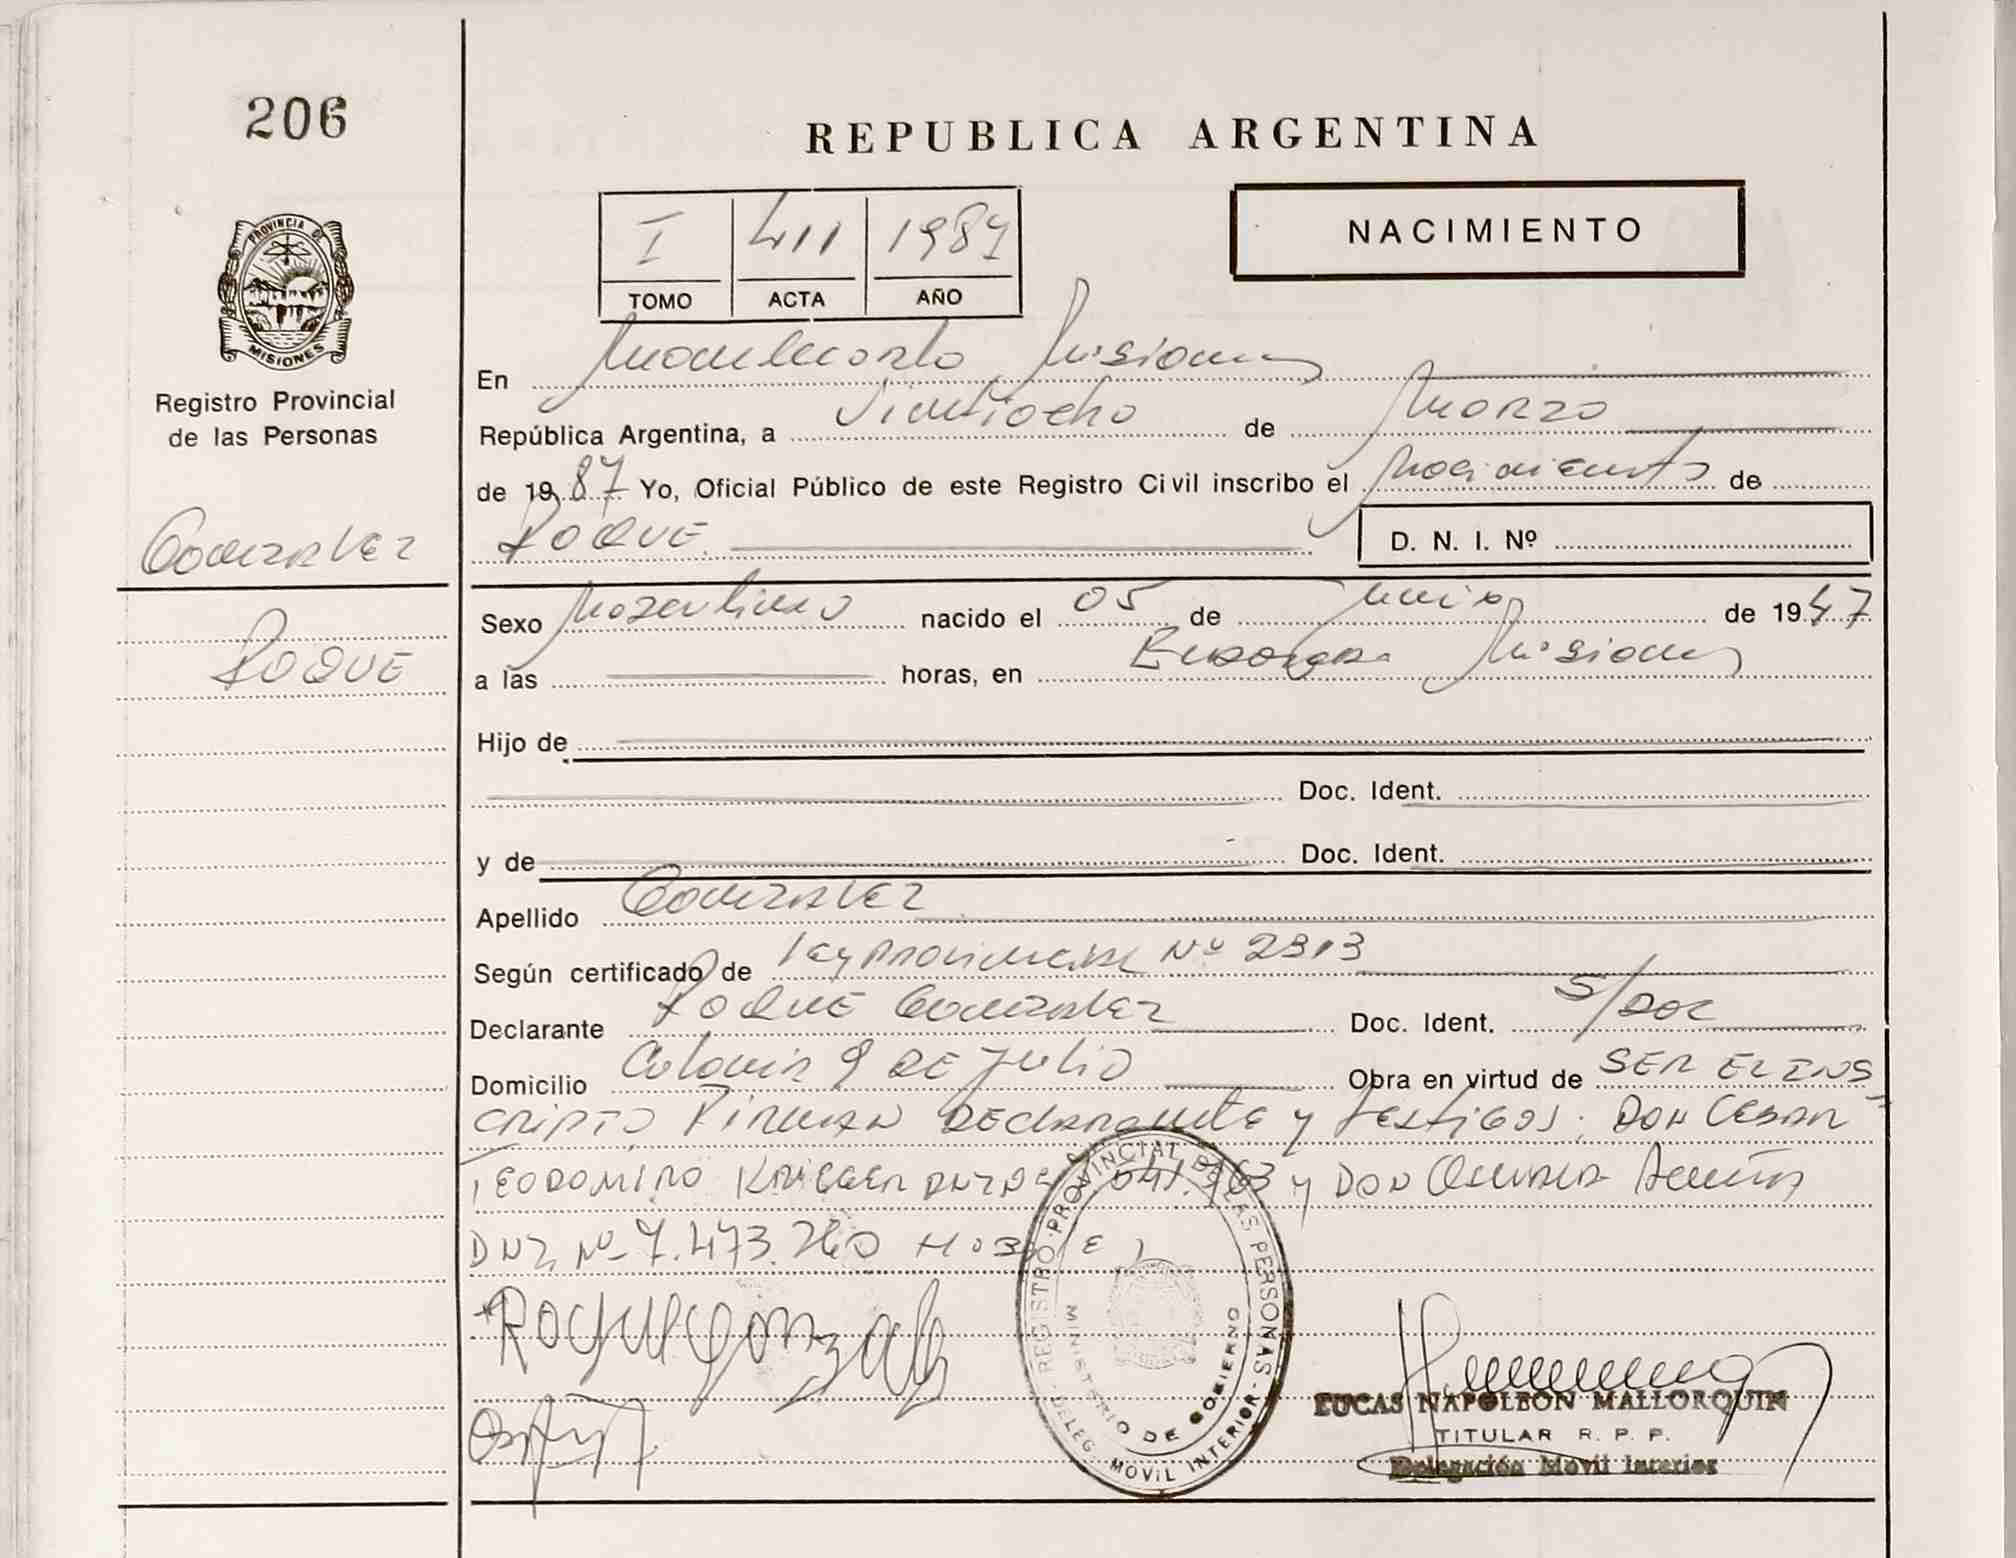 206
REPUBLICA ARGENTINA
I 411 1987
TOMO ACTA AÑO
NACIMIENTO
PROVINCIA DE MISIONES
Registro Provincial
de las Personas
En Montecarlo Misiones
República Argentina, a Vintiocho de Marzo
de 1987 Yo, Oficial Público de este Registro Civil inscribo el Nacimiento de
Gonzalez
ROQUE
D. N. I. Nº
ROQUE
Sexo Masculino nacido el 05 de Junio de 1947
a las horas, en Misiones
Hijo de
Doc. Ident.
y de Doc. Ident.
Apellido Gonzalez
Según certificado de Ley Provincial Nº 2313
Declarante ROQUE Gonzalez Doc. Ident. S/Doc
Domicilio Colonia 9 DE Julio Obra en virtud de SER EL INS
CRIPTO Firman Declarante y Testigos: Don Cesar
TEODOMIRO KRIEGER y DON Acuña
DNI Nº 7.473.260
Roque Gonzalez
REGISTRO PROVINCIAL DE LAS PERSONAS
MINISTERIO DE GOBIERNO
DELEG. MOVIL INTERIOR
LUCAS NAPOLEON MALLORQUIN
TITULAR R. P. P.
Delegación Movil Interior